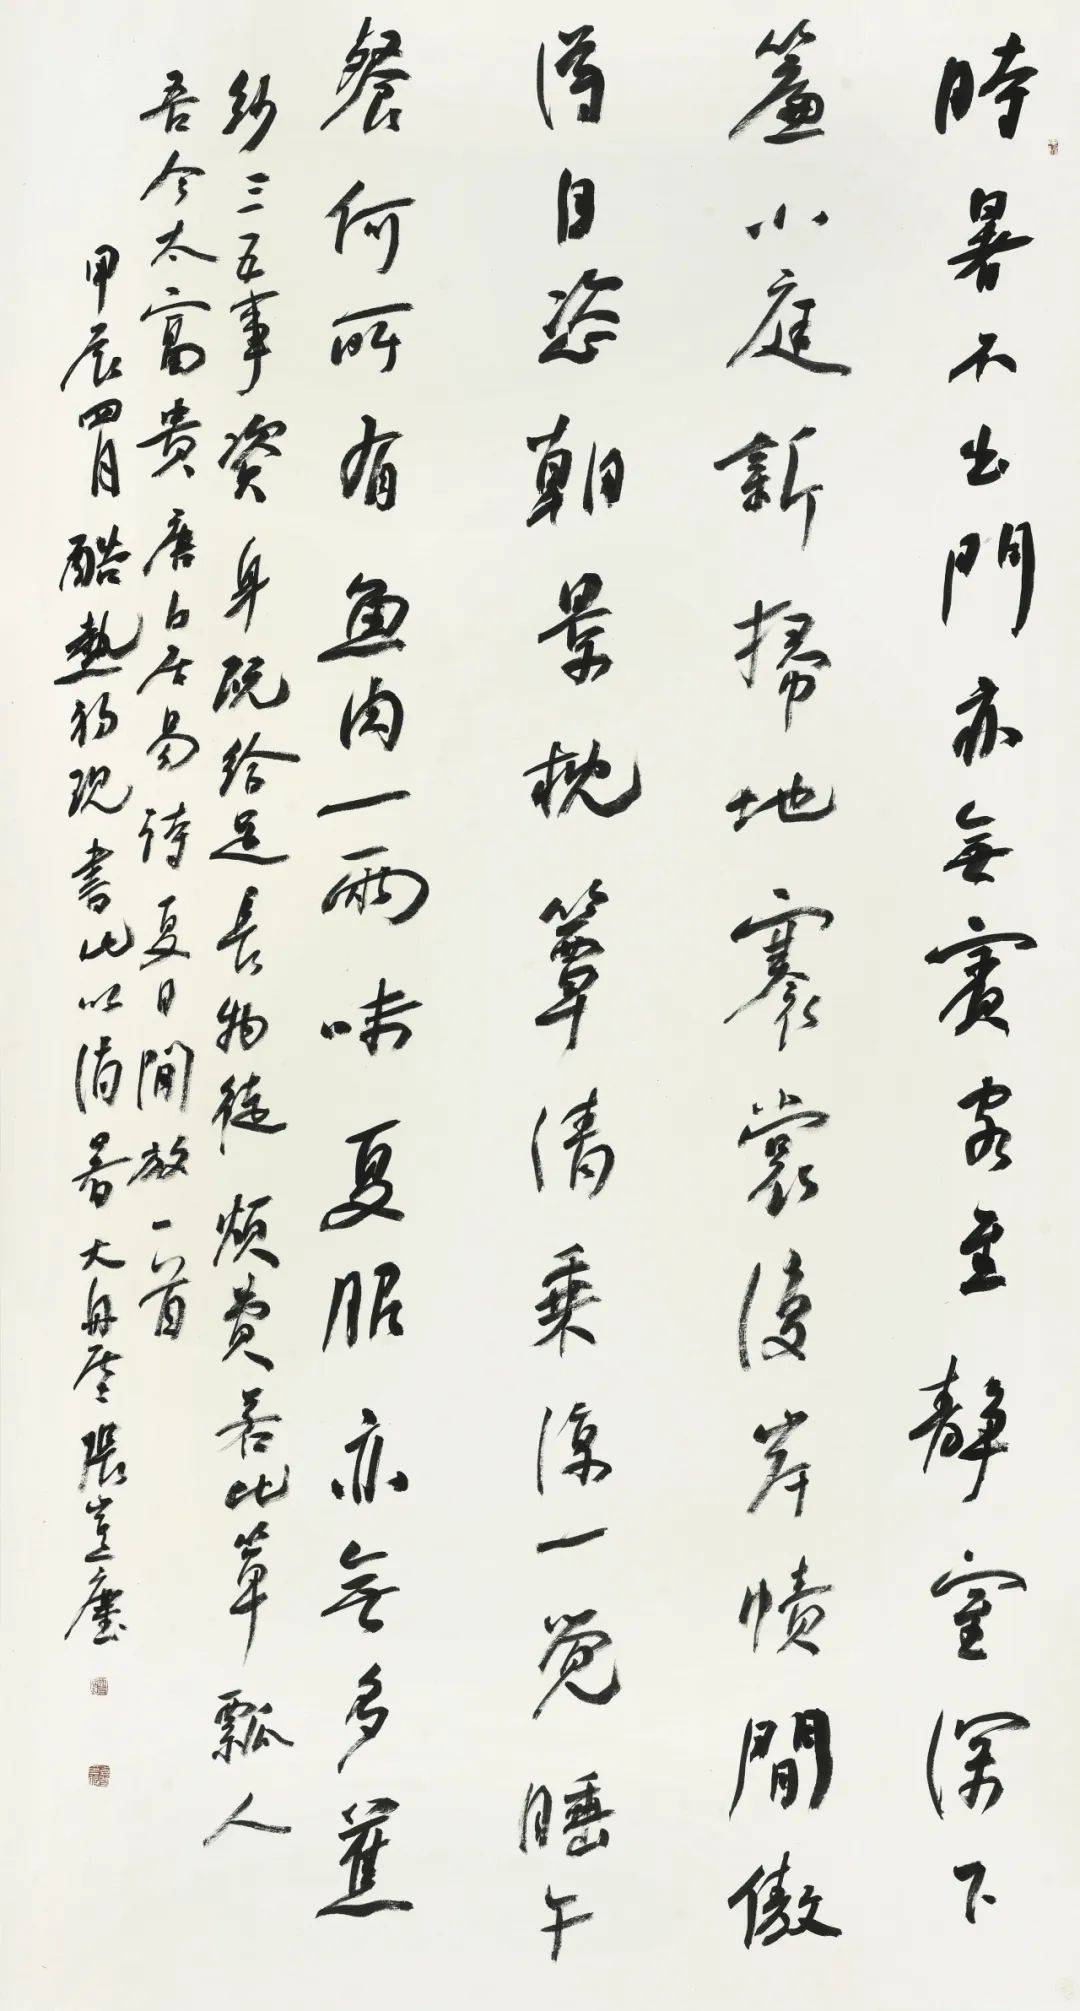 時暑不出門亦無賓客至靜室深下
簾小庭新掃地褰裳復岸幘閒傲
得自恣朝景枕簟清乘涼一覺睡午
餐何所有魚肉一兩味夏服亦無多蕉
紗三五事資身既給足長物徒煩費若比簞瓢人
吾今太富貴唐白居易詩夏日閒放一首
甲辰四月酷熱初現書此以消暑大舟居張